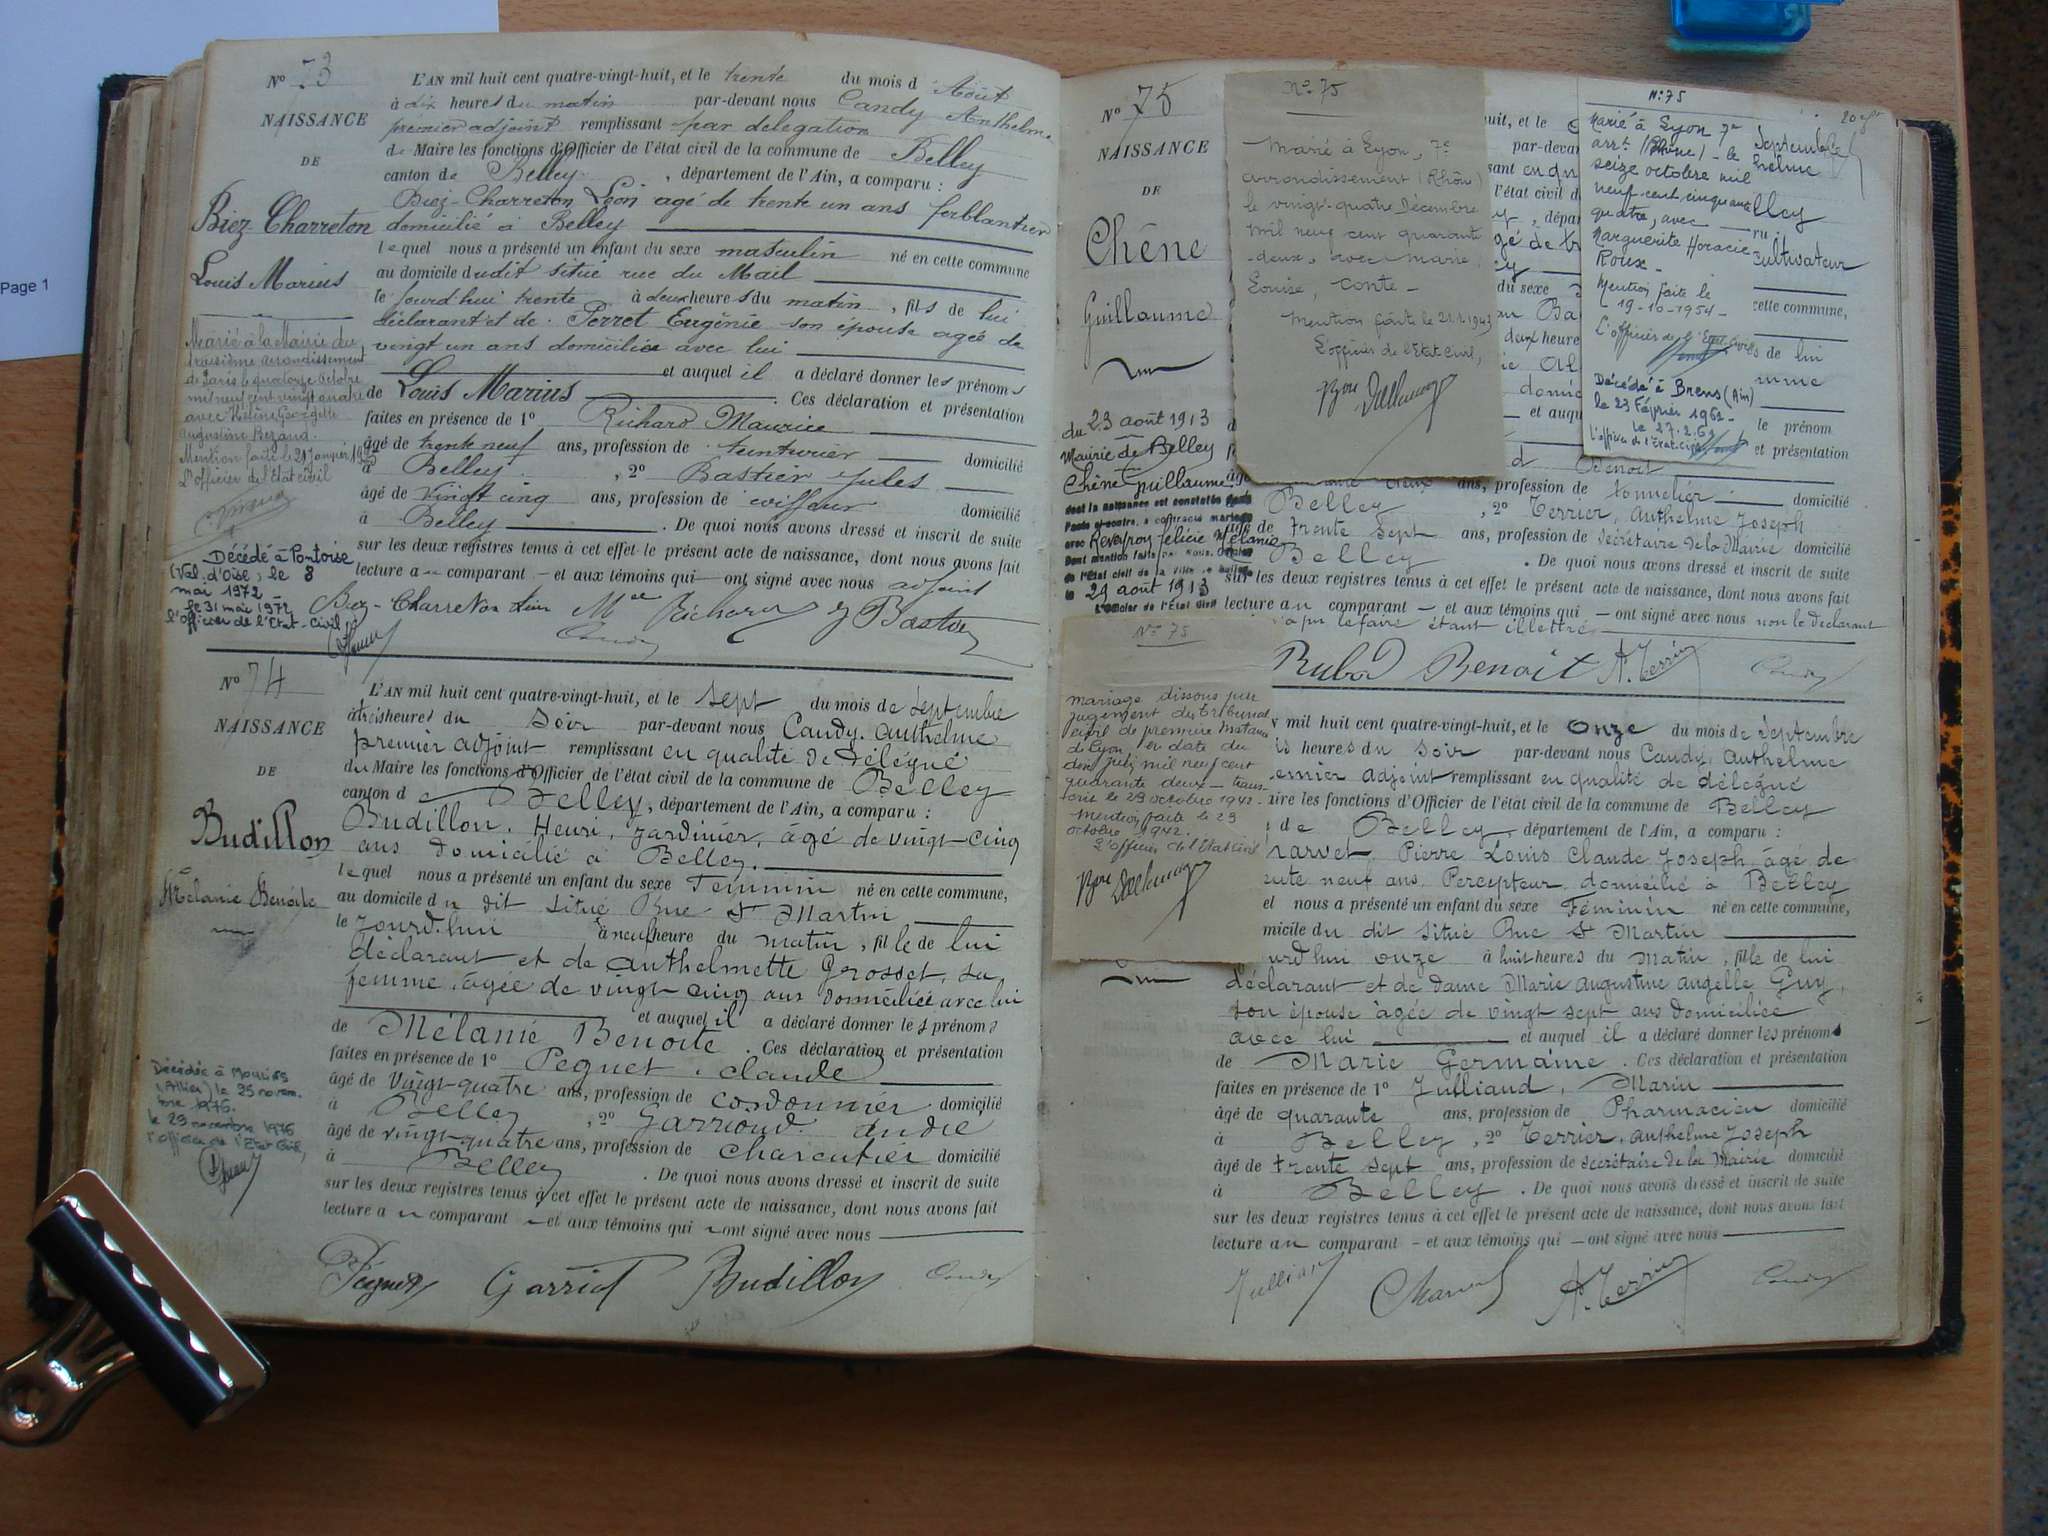 Page 1
N° 73
NAISSANCE
DE
Biez Charreton
Louis Marius
Marié à la Mairie du
troisième arrondissement
de Paris le quatorze octobre
mil neuf cent vingt quatre
avec Hélène Georgette
Augustine
Mention faite le 21 Janvier
L'officier de l'état civil
Décédé à Pontoise
(Val d'Oise) le 8
mai 1972
le 31 mai 1972
l'officier de l'Etat-Civil
L'AN mil huit cent quatre-vingt-huit, et le trente du mois d'Août
à dix heures du matin par-devant nous Candy Anthelme
premier adjoint remplissant par délégation
de Maire les fonctions d'Officier de l'état civil de la commune de Belley
canton de Belley, département de l'Ain, a comparu :
Biez-Charreton Léon agé de trente un ans ferblantier
domicilié à Belley
lequel nous a présenté un enfant du sexe masculin né en cette commune
au domicile dudit situé rue du Mail
le jourd'hui trente à deux heures du matin, fils de lui
déclarant et de Perret Eugénie son épouse agée de
vingt un ans domiciliée avec lui
et auquel il a déclaré donner les prénoms
de Louis Marius. Ces déclaration et présentation
faites en présence de 1° Richard Maurice
âgé de trente neuf ans, profession de teinturier domicilié
à Belley, 2° Bastier Jules
âgé de vingt cinq ans, profession de coiffeur domicilié
à Belley. De quoi nous avons dressé et inscrit de suite
sur les deux registres tenus à cet effet le présent acte de naissance, dont nous avons fait
lecture au comparant - et aux témoins qui - ont signé avec nous adjoint
Biez-Charreton Léon Mce Richard J Bastier
N° 74
NAISSANCE
DE
Budillon
Mélanie Benoite
Décédée à Moulins
(Allier) le 25 novem.
bre 1976.
le 29 novembre 1976
l'officier de l'Etat Civil,
L'AN mil huit cent quatre-vingt-huit, et le sept du mois de septembre
à trois heures du soir par-devant nous Candy. Anthelme
premier adjoint remplissant en qualité de délégué
du Maire les fonctions d'Officier de l'état civil de la commune de Belley
canton de Belley, département de l'Ain, a comparu :
Budillon. Henri, jardinier, âgé de vingt-cinq
ans domicilié à Belley.
lequel nous a présenté un enfant du sexe Féminin né en cette commune,
au domicile du dit situé Rue St Martin
le jourd'hui à neuf heure du matin, fille de lui
déclarant et de Anthelmette Grosset, sa
femme, âgée de vingt-cinq ans domiciliée avec lui
et auquel il a déclaré donner les prénoms
de Mélanie Benoite. Ces déclaration et présentation
faites en présence de 1° Pegnet, Claude
âgé de vingt-quatre ans, profession de cordonnier domicilié
à Belley, 2° Garrioud. André
âgé de vingt-quatre ans, profession de charcutier domicilié
à Belley. De quoi nous avons dressé et inscrit de suite
sur les deux registres tenus à cet effet le présent acte de naissance, dont nous avons fait
lecture au comparant - et aux témoins qui - ont signé avec nous
Pegnet Budillon Candy
N° 75
NAISSANCE
DE
Chêne
Guillaume
du 23 août 1913
Mairie de Belley
Chêne Guillaume
dont la naissance est constatée dans
l'acte ci-contre, a contracté mariage
avec Reveyron Félicie Mélanie
Dont mention faite par nous, Officier
de l'État civil de la ville de Belley
le 24 août 1913
L'Officier de l'État Civil
N° 75
Marié à Lyon, 7e
arrondissement (Rhône)
le vingt-quatre Décembre
mil neuf cent quarante
-deux, avec Marie,
Louise, Conte -
Mention faite le 21.1.1943
L'officier de l'Etat Civil,
N° 75
Marié à Lyon 7e
arrt. (Rhône) - le
seize octobre mil
neuf-cent cinquante
quatre, avec
Marguerite Horacie
Roux -
Mention faite le
19-10-1954 -
L'officier de l'Etat-Civil
Décédé à Brens (Ain)
le 23 Février 1962 -
L'officier de l'Etat-Civil
20
Septembre
elley
cultivateur
cette commune,
de lui
femme
le prénom
et présentation
Benoit
ans, profession de tonnelier domicilié
Belley, 2° Terrier, Anthelme Joseph
âgé de trente sept ans, profession de secrétaire de la Mairie domicilié
Belley. De quoi nous avons dressé et inscrit de suite
sur les deux registres tenus à cet effet le présent acte de naissance, dont nous avons fait
lecture au comparant - et aux témoins qui - ont signé avec nous non le déclarant
pu le faire étant illettré
Rubod Benoit A. Terrier Candy
N° 75
mariage dissous par
jugement du tribunal
civil de première instance
de Lyon, en date du
deux juin mil neuf cent
quarante deux - trans-
crit le 29 octobre 1942 -
Mention faite le 29
octobre 1942.
L'officier de l'Etat Civil
mil huit cent quatre-vingt-huit, et le onze du mois de septembre
heures du soir par-devant nous Candy, Anthelme
premier adjoint remplissant en qualité de délégué
Maire les fonctions d'Officier de l'état civil de la commune de Belley
de Belley, département de l'Ain, a comparu :
Pierre Louis Claude Joseph, âgé de
neuf ans, Percepteur domicilié à Belley
nous a présenté un enfant du sexe Féminin né en cette commune,
domicile du dit situé Rue St Martin
jourd'hui onze à huit heures du matin, fille de lui
déclarant et de dame Marie Augustine Angelle Guy,
son épouse âgée de vingt sept ans domiciliée
avec lui et auquel il a déclaré donner les prénoms
de Marie Germaine. Ces déclaration et présentation
faites en présence de 1° Julliand, Marin
âgé de quarante ans, profession de Pharmacien domicilié
à Belley, 2° Terrier, Anthelme Joseph
âgé de trente sept ans, profession de secrétaire de la Mairie domicilié
à Belley. De quoi nous avons dressé et inscrit de suite
sur les deux registres tenus à cet effet le présent acte de naissance, dont nous avons fait
lecture au comparant - et aux témoins qui - ont signé avec nous
Julliand Charvet A. Terrier Candy